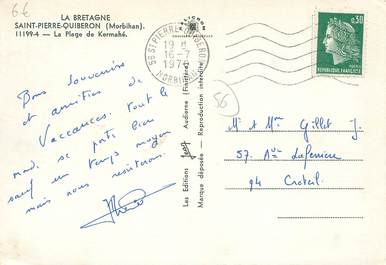 66
LA BRETAGNE
SAINT-PIERRE-QUIBERON (Morbihan).
11199-4 — La Plage de Kermahé.
Bons souvenirs
et amitiés de
Vaccances. Tout le
monde se porte bien
sauf un temps moyen
mais nous résisterons.
Les Editions Jos Audierne (Finistère)
Marque déposée - Reproduction interdite
56 ST PIERRE QUIBERON
16-7
MORBIHAN
0,30
REPUBLIQUE FRANÇAISE
56
Mr et Mme Gillot J.
57. Ave Laferrière
94 Creteil